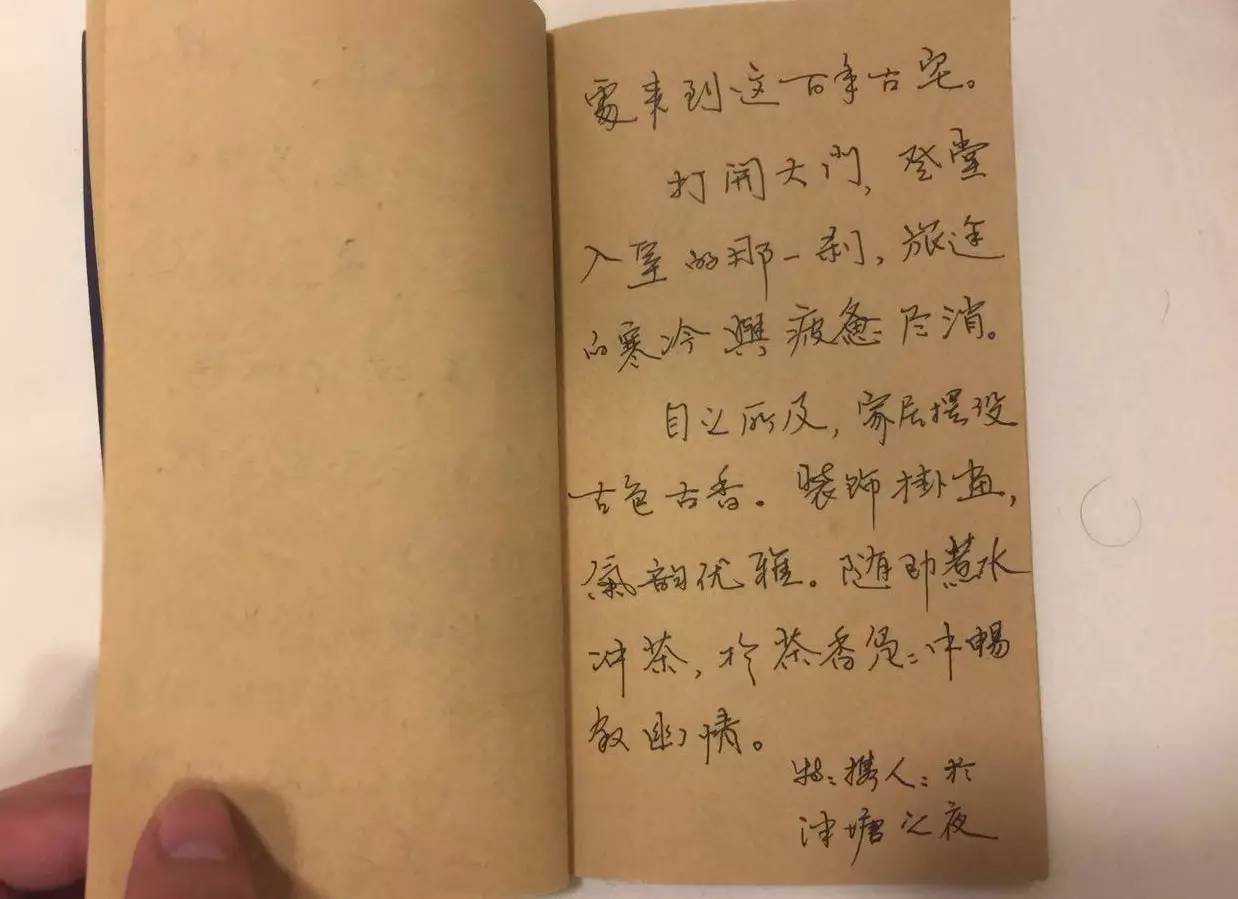 来到这百年古宅。
打開大门，登堂
入室的那一刹，旅途
的寒冷與疲惫尽消。
目之所及，家居摆设
古色古香。装饰掛画，
氣韵优雅。随即煮水
冲茶，於茶香袅〻中暢
叙幽情。
携人〻於
泮塘之夜